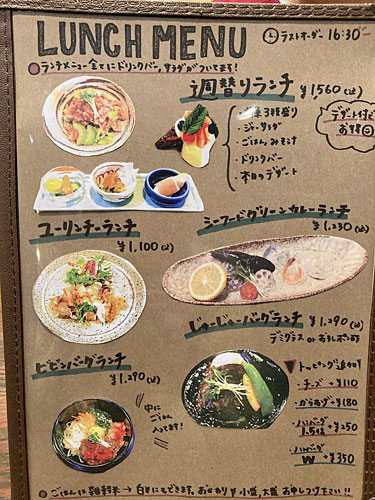 LUNCH MENU
ラストオーダー 16:30
ランチメニュー全てにドリンクバー、サラダがついてます！
週替りランチ ¥1,560(込)
菜3種盛り
・ジャーサラダ
・ごはん,みそ汁
・ドリンクバー
・本日のデザート
デザート付で
お得
ユーリンチーランチ
¥1,100(込)
シーフードグリーンカレーランチ
¥1,230(込)
じゅーじゅーバーグランチ ¥1,290(込)
デミグラス or おろしポン酢
ビビンバーグランチ
¥1,290(込)
中に
ごはん
入ってます!
トッピング追加
・チーズ +¥110
・からあげ +¥180
・ハンバーグ 1.5倍 +¥250
・ハンバーグ W +¥350
ごはんは雑穀米→白米にもできます。おかわり、小盛、大盛お申しつけ下さい!!